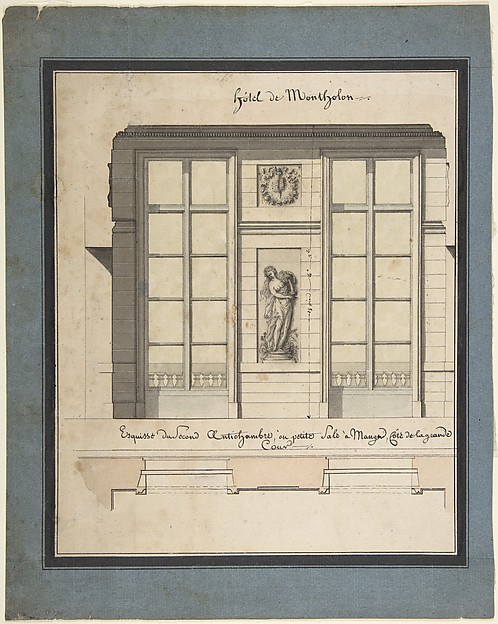 Hôtel de Montholon
Esquisse du Second Antichambre, ou petite Sale à Manger Côté de la grande
Cour